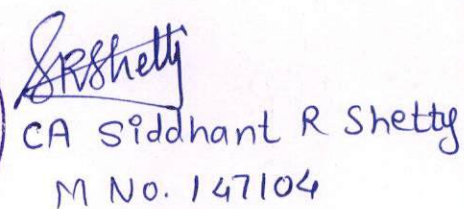 SRShetty
CA Siddhant R Shetty
M No. 147104